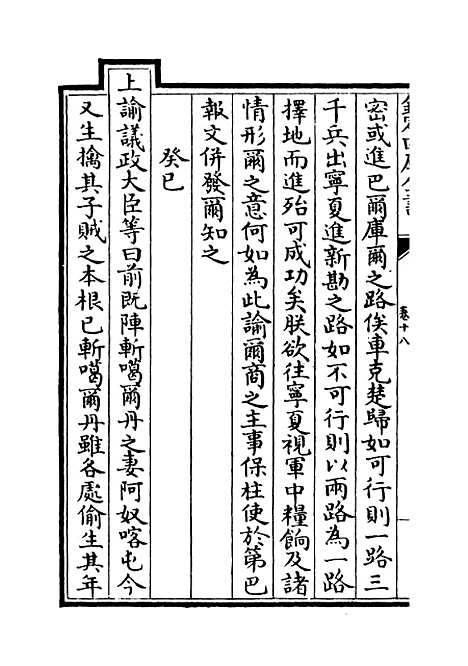 欽定四庫全書
卷十八
密或進巴爾庫爾之路俟車克楚歸如可行則一路三
千兵出寧夏進新勘之路如不可行則以兩路為一路
擇地而進殆可成功矣朕欲往寧夏視軍中糧餉及諸
情形爾之意何如為此諭爾商之主事保柱使於第巴
報文併發爾知之
癸巳
上諭議政大臣等曰前既陣斬噶爾丹之妻阿奴喀屯今
又生擒其子賊之本根已斬噶爾丹雖各處偷生其年